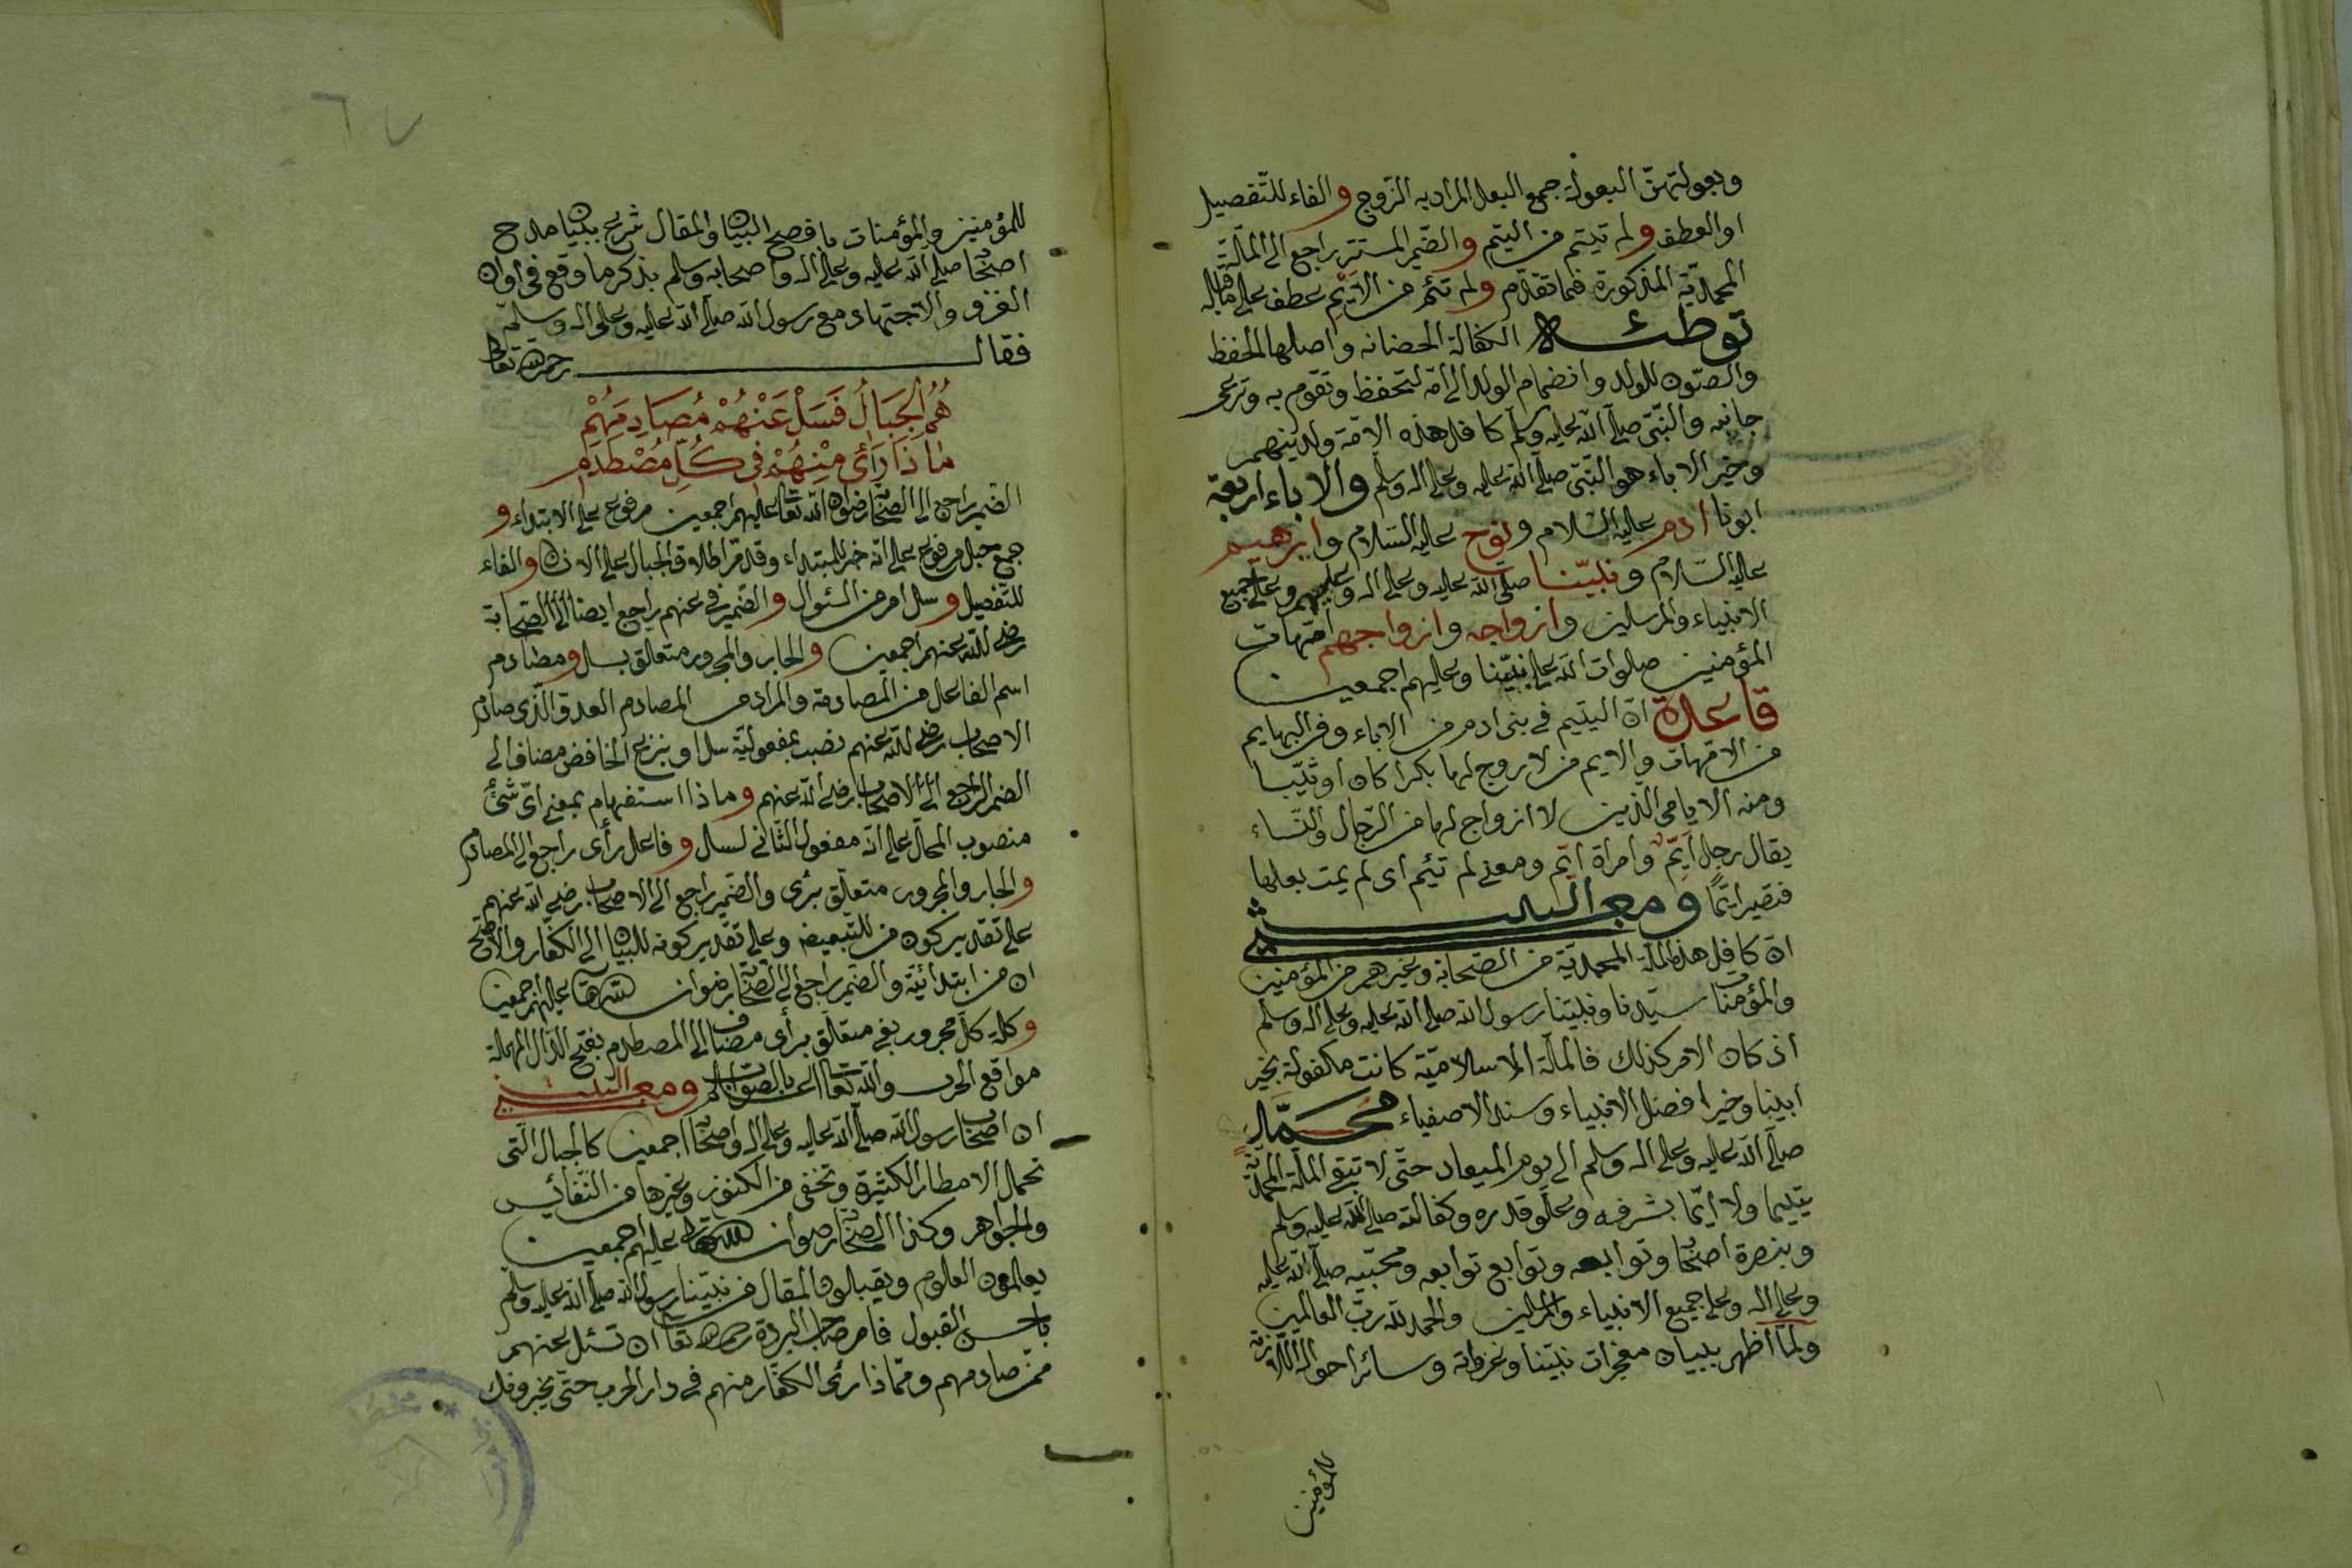 وبعولتهنّ البعولة جمع البعل المراد به الزّوج والفاء للتّفصيل
او العطف ولم تيتم من اليتم والضّمير المستتر راجع الى الملّة
المحمديّة المذكورة فيما تقدّم ولم تئم من الأيْم عطف على ما قبله
توطئه الكفالة الحضانه واصلها الحفظ
والصّون للولد وانضمام الولد الى امّه لتحفظ وتقوم به وترعى
جانبه والنّبّى صلّى الله عليه وسلّم كافل هذه الامّة ولدينهم
وخير الاباء هو النّبّى صلّى الله عليه وعلى اله وسلّم والاباء اربعة
ابونا ادم عليه السّلام ونوح عليه السّلام وابرهيم
عليه السّلام ونبيّنا صلّى الله عليه وعلى اله وعليهم وعلى جميع
الانبياء والمرسلين وازواجه وازواجهم امّهات
المؤمنين صلوات الله على نبيّنا وعليهم اجمعين
قاعدة انّ اليتيم فى بنى ادم من الاباء وفى البهايم
من الامّهات والايم من لا زوج لها بكرا كان او ثيّبا
ومنه الايامى الّذين لا ازواج لها من الرّجال والنّساء
يقال رجل ايّم وامراة ايّم ومعنى لم تئيم اى لم يمت بعلها
فتصير ايّمًا ومعنى البيت
انّ كافل هذه الملّة المحمديّة من الصّحابة وغيرهم من المؤمنين
والمؤمنات سيّدنا ونبيّنا رسول الله صلّى الله عليه وعلى اله وسلم
اذ كان الامر كذلك فالملّة الاسلاميّة كانت مكفولة بخير
ابينا وخير افضل الانبياء وسند الاصفياء محمّد
صلّى الله عليه وعلى اله وسلم الى يوم الميعاد حتّى لا تبقى الملّة المحمديّة
يتيما ولا ايّما بشرفه وعلّو قدره وكفالته صلى الله عليه وسلم
وبنصرة اصحابه وتوابعه وتوابع توابعه ومحبّيه صلّى الله عليه
وعلى اله وعلى جميع الانبياء والمرسلين والحمد لله ربّ العالمين
ولمّا اظهر ببيان معجزات نبيّنا وغزواته وسائر احواله
للمؤمنين
للمؤمنين والمؤمنات بافصح البيان والمقال شرع ببيان مدح
اصحابه صلى الله عليه وعلى اله واصحابه وسلم بذكر ما وقع فى اوان
الغزو والاجتهاد مع رسول الله صلّى الله عليه وعلى اله وسلم
فقال رحمه الله تعالى
هُمُ الْجِبَالُ فَسَلْ عَنْهُمْ مُصَادِمَهُمْ
مَاذَا رَأَى مِنْهُمْ فِى كُلِّ مُصْطَدَمِ
الضّمير راجع الى الصّحابة رضوان الله تعالى عليهم اجمعين مرفوع على الابتداء و
جمع جبل مرفوع على انّه خبر للمبتداء وقد مرّ اطلاق الجبال على الانف والفاء
للتّفصيل وسل امر من السّئوال والضّمير فى عنهم راجع ايضا الى الصّحابة
رضى الله عنهم اجمعين والجار والمجرور متعلّق بسل ومصادم
اسم الفاعل من المصادمه والمراد من المصادم العدوّ الّذى صادم
الاصحاب رضى الله عنهم نصب بمفعوليّة سل او بنزع الخافض مضاف الى
الضمير الراجع الى الاصحاب رضى الله عنهم وماذا استفهام بمعنى اىّ شئ
منصوب المحلّ على انّه مفعول الثّانى لسل وفاعل رأى راجع الى المصادم
والجار والمجرور متعلّق برأى والضّمير راجع الى الاصحاب رضى الله عنهم
على تقدير كون من للتّبعيض وعلى تقدير كونه للبيان الى الكفّار والاوضح
ان من ابتدائيّة والضّمير راجع الى الصّحابة رضوان الله تعالى عليهم اجمعين
وكلمة كلّ مجرور بفى متعلّق برأى مضاف الى المصطدم بفتح الدّال المهملة
مواقع الحرب والله تعالى اعلم بالصّواب ومعنى البيت
ان اصحاب رسول الله صلّى الله عليه وعلى اله واصحابه اجمعين كالجبال الّتى
تحمل الامطار الكثيرة وتخفى من الكنوز وغيرها من النّفائس
والجواهر وكذا الصّحابة رضوان الله تعالى عليهم اجمعين
يعالمون العلوم ويقبلون المقال من نبيّنا رسول الله صلّى الله عليه وسلّم
باحسن القبول فامر صاحب البردة رحمه الله تعالى ان تسئل عنهم
ممّن صادمهم وممّاذا رأى الكفّار منهم فى دار الحرب حتّى يخبرونك